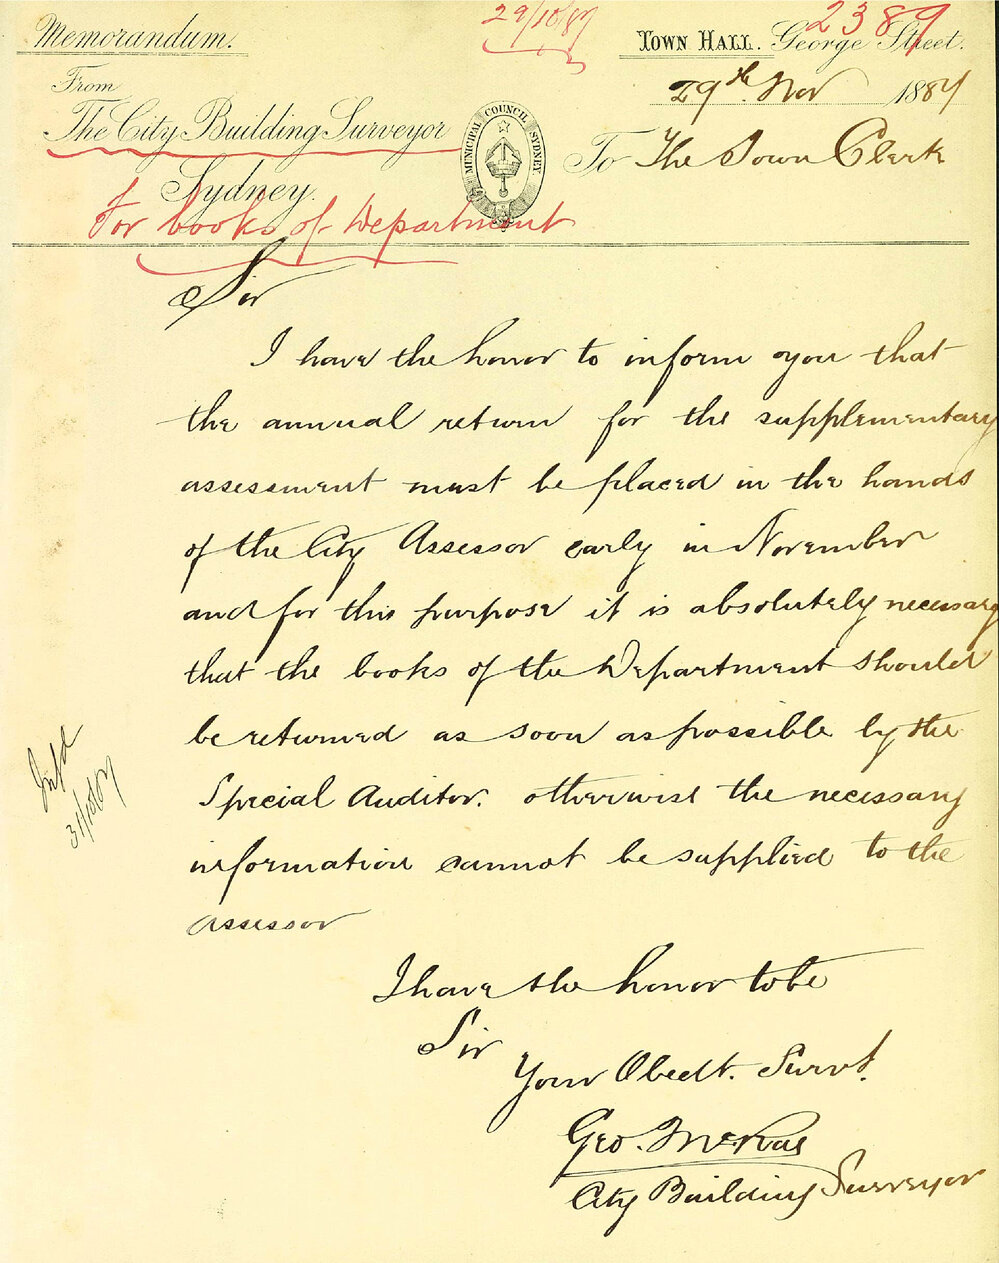 29/10/87
2389
Memorandum.
TOWN HALL. George Street.
From
29th Nov 1887
The City Building Surveyor
MUNICIPAL COUNCIL SYDNEY
To The Town Clerk
Sydney.
For books of Department
Sir
I have the honor to inform you that
the annual return for the supplementary
assessment must be placed in the hands
of the City Assessor early in November
and for this purpose it is absolutely necessary
that the books of the Department should
be returned as soon as possible by the
Special Auditor. otherwise the necessary
information cannot be supplied to the
Assessor
Infd
31/10/87
I have the honor to be
Sir
Your Obedt. Servt.
Geo. McRae
City Building Surveyor